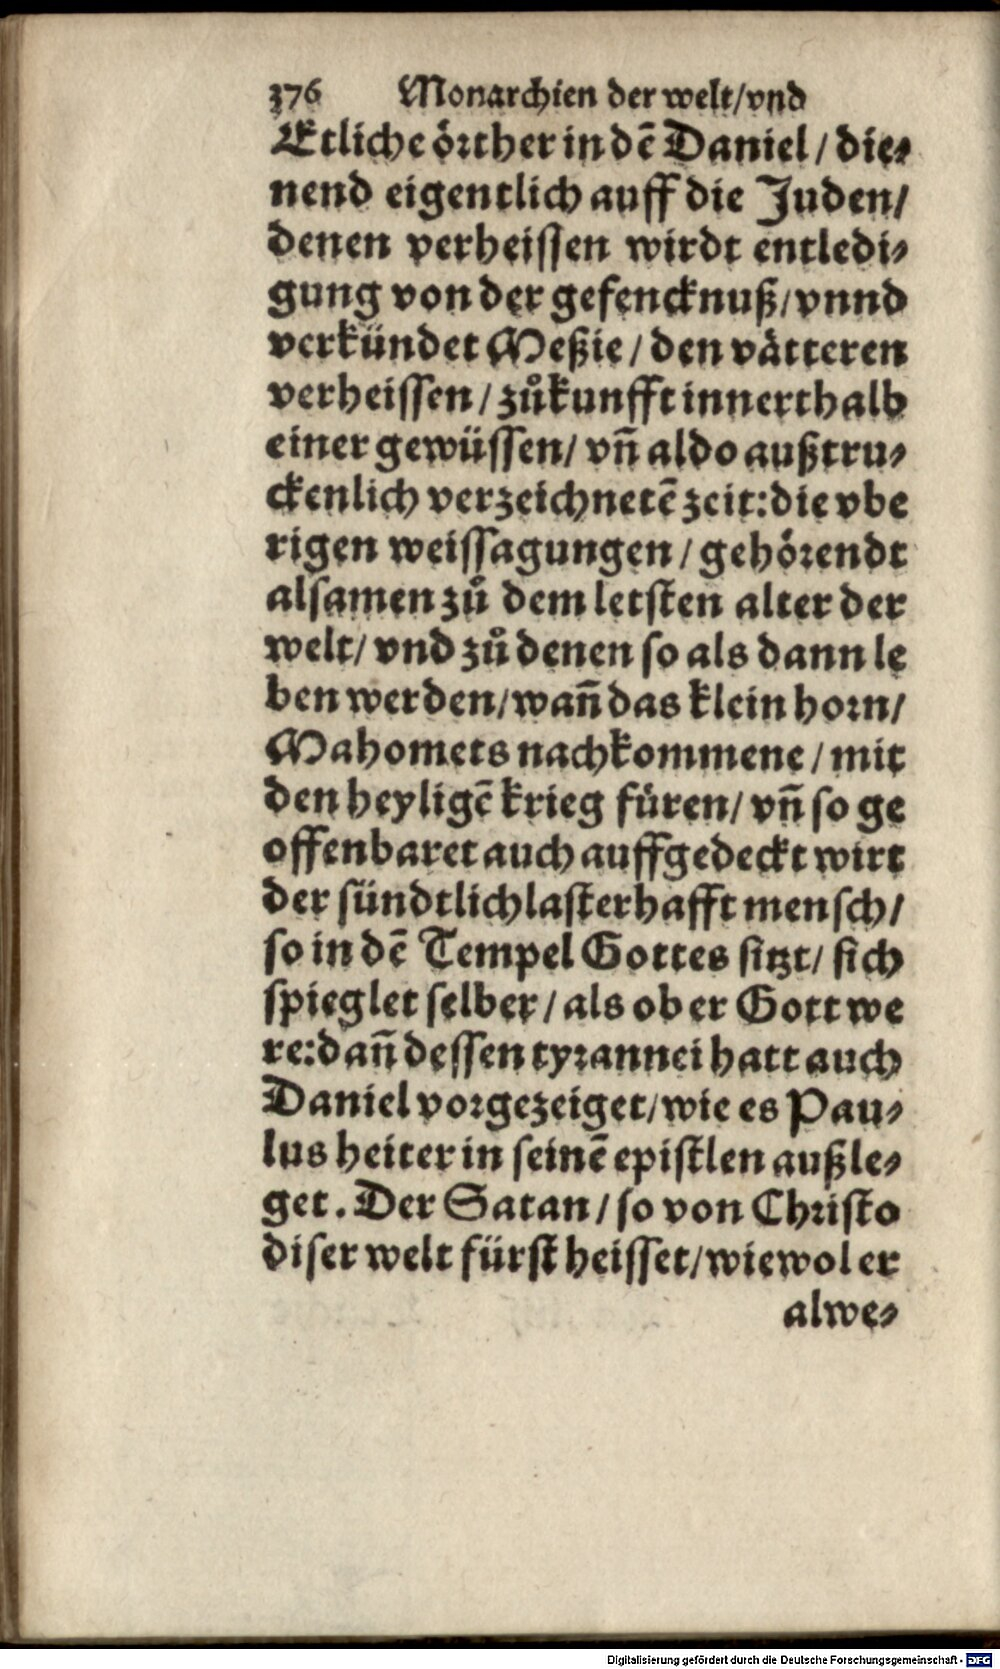 376 Monarchien der welt/vnd
Etliche örther in dē Daniel/ die⸗
nend eigentlich auff die Juden/
denen verheissen wirdt entledi⸗
gung von der gefencknuß/vnnd
verkündet Meßie/den vätteren
verheissen/zůkunfft innerthalb
einer gewüssen/ vñ aldo außtru⸗
ckenlich verzeichnetē zeit:die vbe
rigen weissagungen/gehörendt
alsamen zů dem letsten alter der
welt/ vnd zů denen so als dann le
ben werden/wañ das klein horn/
Mahomets nachkommene/mit
den heyligē krieg füren/ vñ so ge
offenbaret auch auffgedeckt wirt
der sündtlich lasterhafft mensch/
so in dē Tempel Gottes sitzt/ sich
spieglet selber/als ob er Gott we
re:dañ dessen tyrannei hatt auch
Daniel vorgezeiget/wie es Pau⸗
lus heiter in seinē epistlen außle⸗
get. Der Satan/so von Christo
diser welt fürst heisset/wiewol er
alwe⸗
Digitalisierung gefördert durch die Deutsche Forschungsgemeinschaft - DFG